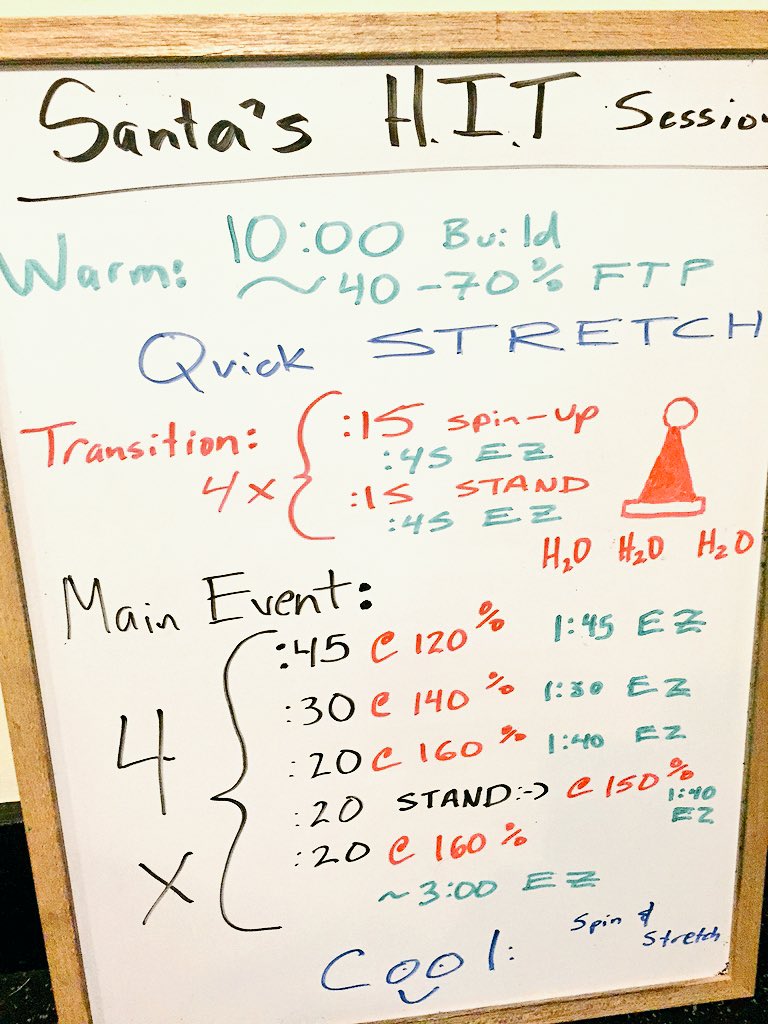 Santa's H.I.T Session
Warm: 10:00 Build
~40-70% FTP
Quick STRETCH
Transition: :15 spin-up
:45 EZ
4x :15 STAND
:45 EZ
H2O H2O H2O
Main Event:
:45 @ 120% 1:45 EZ
:30 @ 140% 1:30 EZ
4 :20 @ 160% 1:40 EZ
:20 STAND:-) @ 150% 1:40 EZ
x :20 @ 160%
~3:00 EZ
Cool: Spin & Stretch